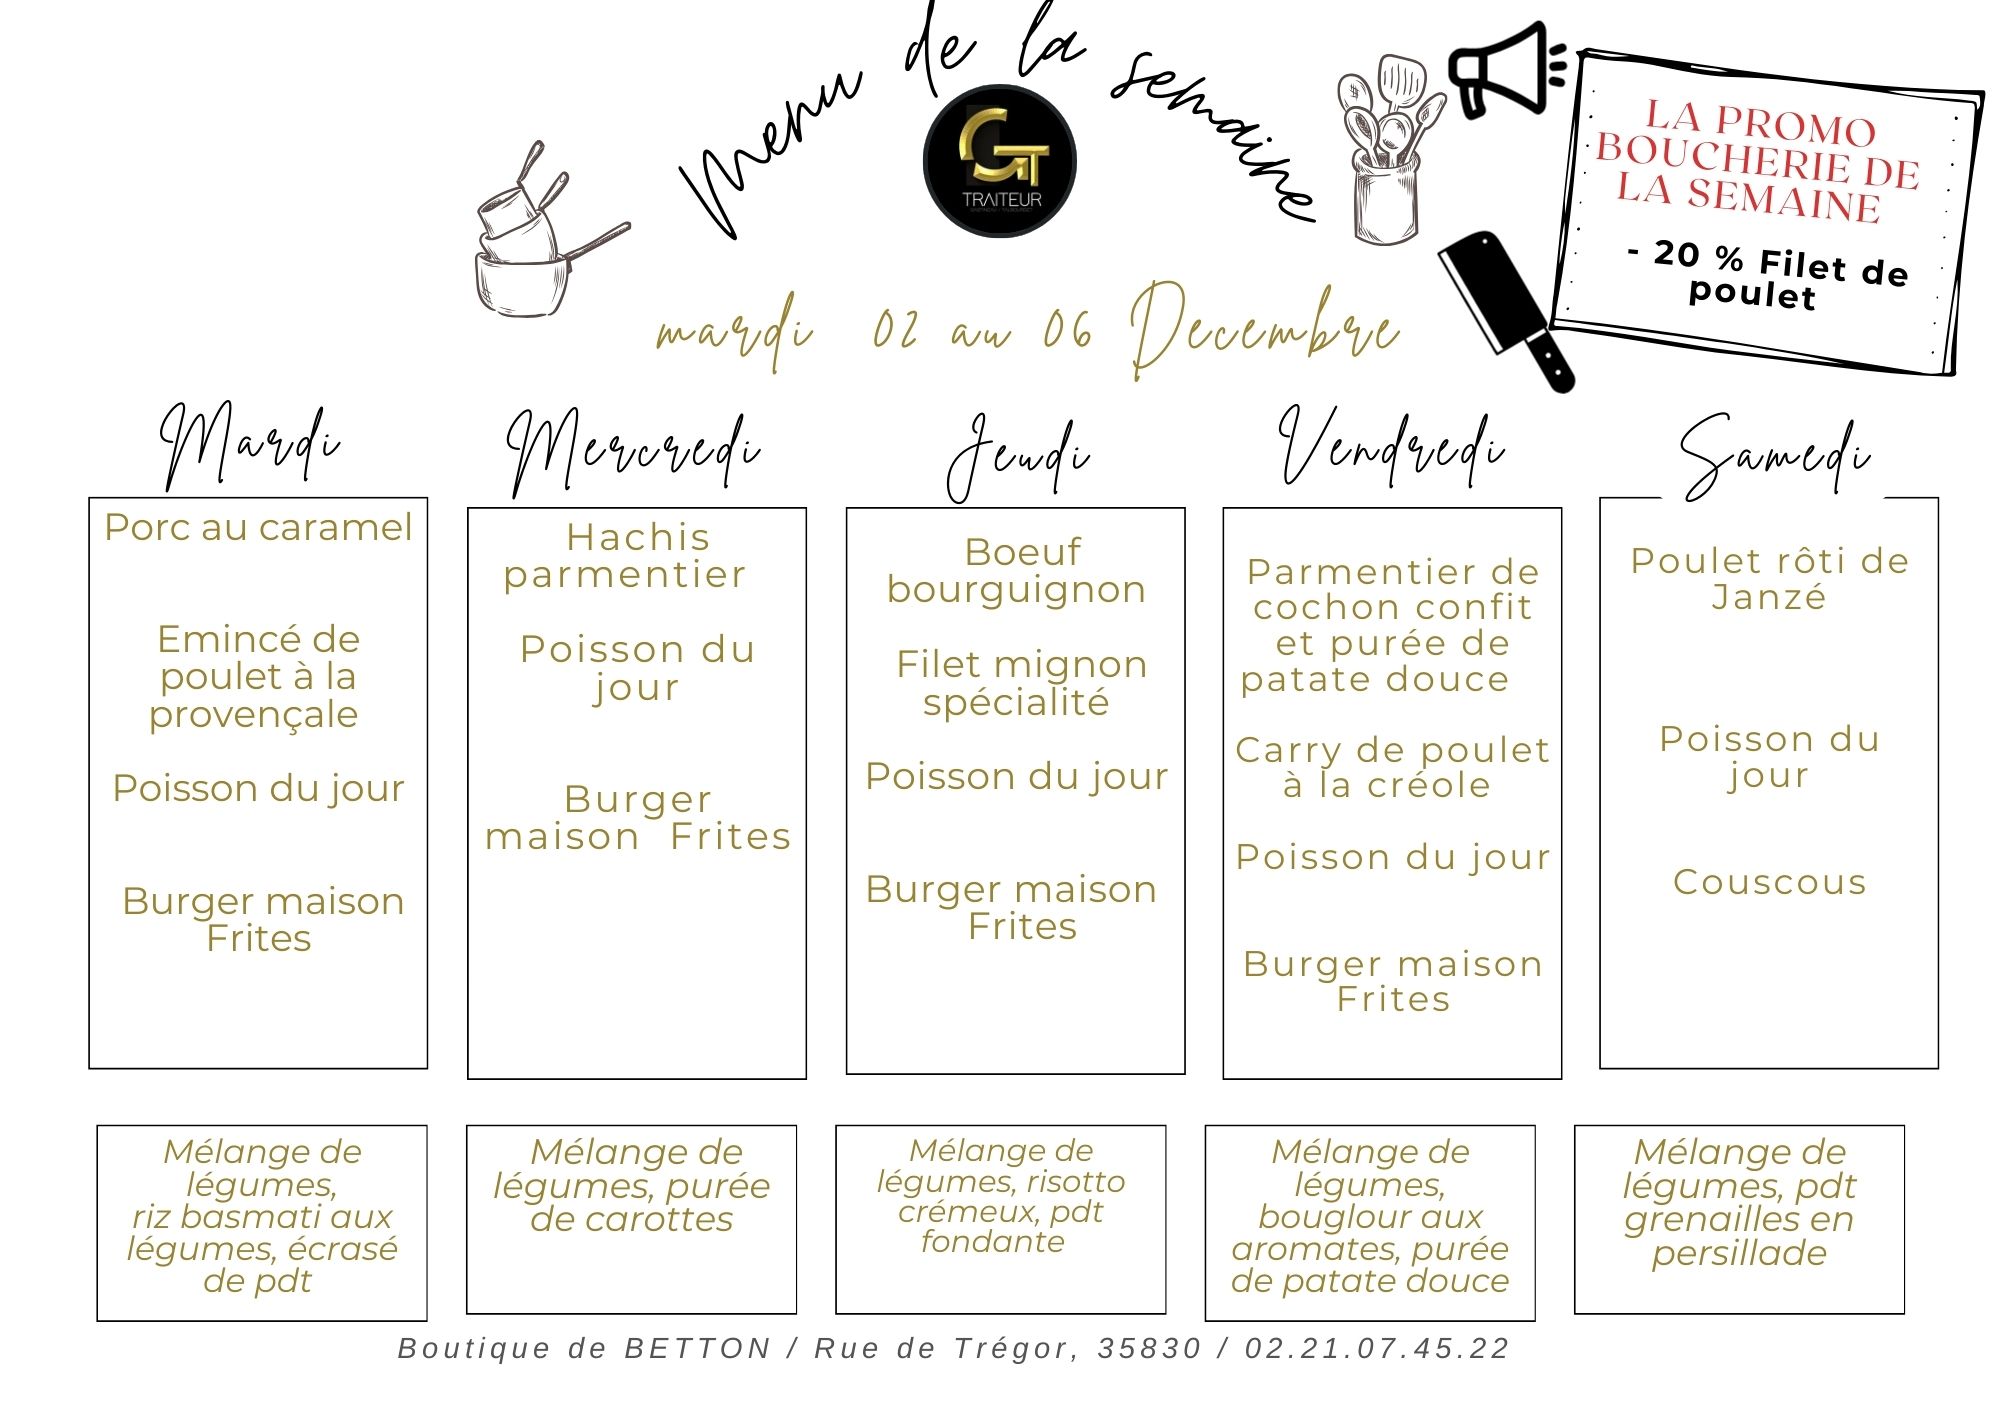 Menu de la semaine
GT
TRAITEUR
LA PROMO
BOUCHERIE DE
LA SEMAINE
- 20 % Filet de
poulet
mardi 02 au 06 Decembre
Mardi
Porc au caramel
Emincé de
poulet à la
provençale
Poisson du jour
Burger maison
Frites
Mercredi
Hachis
parmentier
Poisson du
jour
Burger
maison Frites
Jeudi
Boeuf
bourguignon
Filet mignon
spécialité
Poisson du jour
Burger maison
Frites
Vendredi
Parmentier de
cochon confit
et purée de
patate douce
Carry de poulet
à la créole
Poisson du jour
Burger maison
Frites
Samedi
Poulet rôti de
Janzé
Poisson du
jour
Couscous
Mélange de
légumes,
riz basmati aux
légumes, écrasé
de pdt
Mélange de
légumes, purée
de carottes
Mélange de
légumes, risotto
crémeux, pdt
fondante
Mélange de
légumes,
bouglour aux
aromates, purée
de patate douce
Mélange de
légumes, pdt
grenailles en
persillade
Boutique de BETTON / Rue de Trégor, 35830 / 02.21.07.45.22